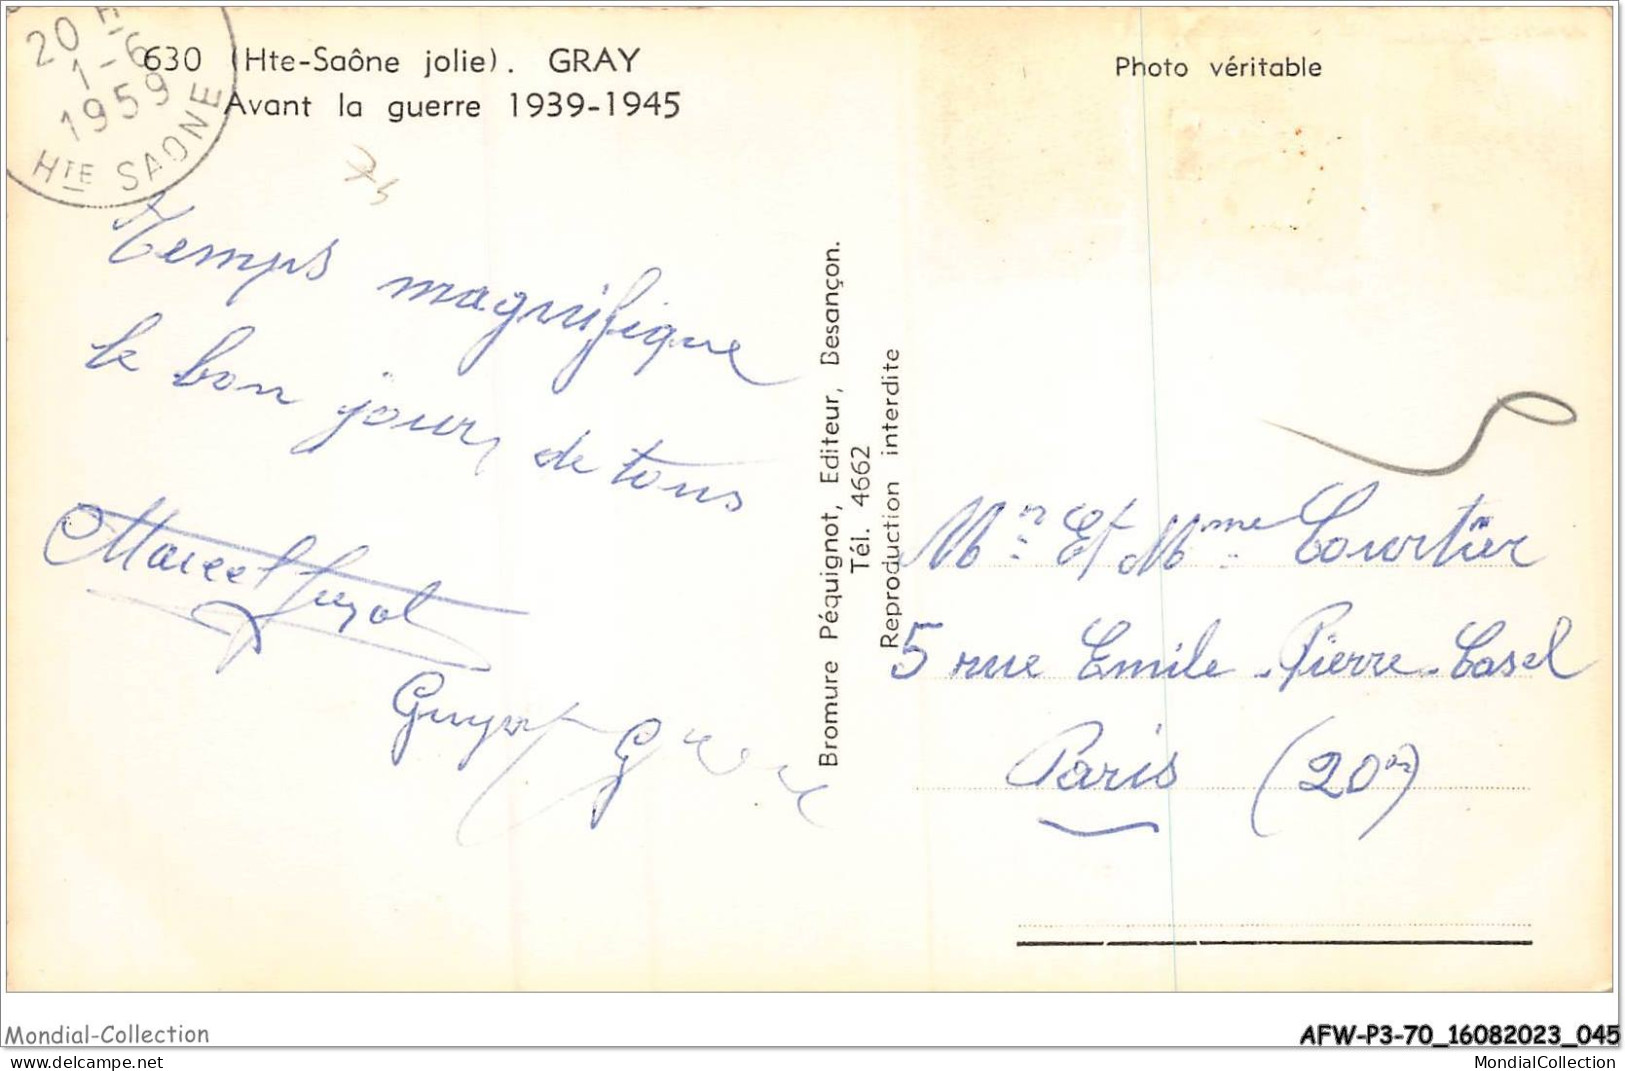 20 H
1-6
1959
HTE SAONE
630 (Hte-Saône jolie). GRAY
Avant la guerre 1939-1945
Photo véritable
Temps magnifique
le bon jour de tous
Marcel Guyot
Guyot
Bromure Péquignot, Editeur, Besançon.
Tél. 4662
Reproduction interdite
Mr Et Mme Courtier
5 rue Emile-Pierre-Casel
Paris (20e)
Mondial-Collection
AFW-P3-70_16082023_045
MondialCollection